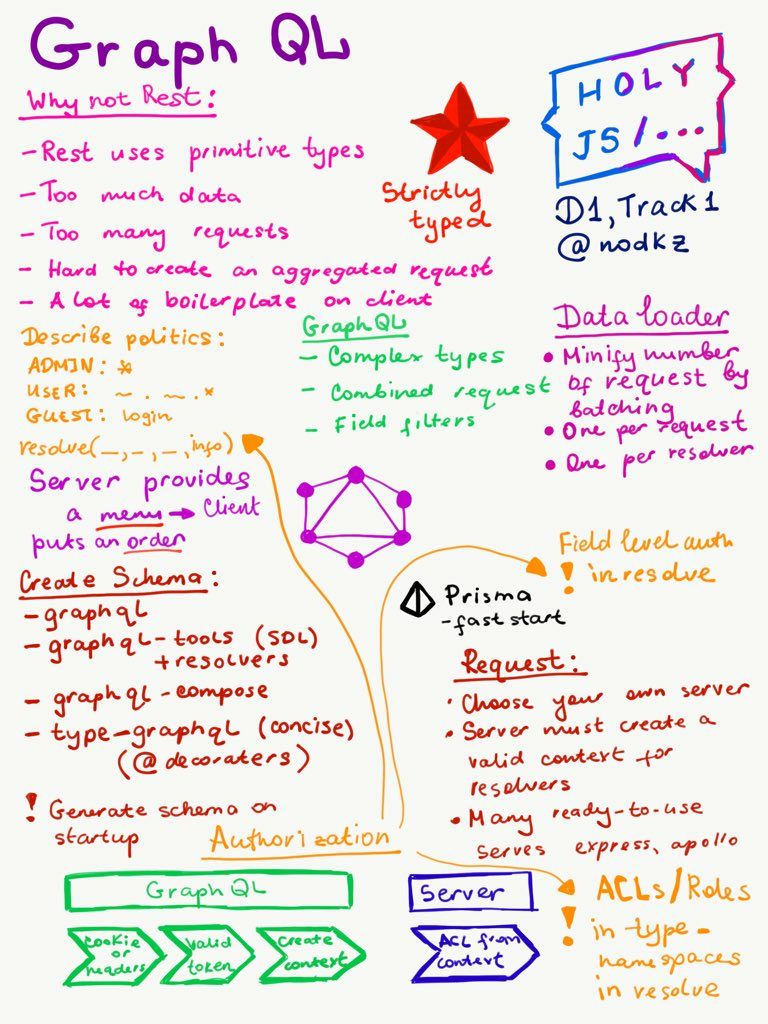 Graph QL
HOLY
JS/...
D1, Track 1
@nodkz
Why not Rest:
- Rest uses primitive types
- Too much data
- Too many requests
- Hard to create an aggregated request
- A lot of boilerplate on client
Strictly
typed
Describe politics:
ADMIN: *
USER: ~ . ~ . *
GUEST: login
resolve(_,_,_,info)
GraphQL
- Complex types
- Combined request
- Field filters
Data loader
• Minify number
of request by
batching
• One per request
• One per resolver
Server provides
a menu → Client
puts an order
Create Schema:
- graphql
- graphql-tools (SDL)
+resolvers
- graphql-compose
- type-graphql (concise)
(@decoraters)
! Generate schema on
startup
Field level auth
! in resolve
Prisma
- fast start
Request:
• Choose your own server
• Server must create a
valid context for
resolvers
• Many ready-to-use
serves express, apollo
Authorization
! ACLs/Roles
! in type-
namespaces
in resolve
GraphQL
cookie
or
headers
valid
token
create
context
Server
ACL from
context